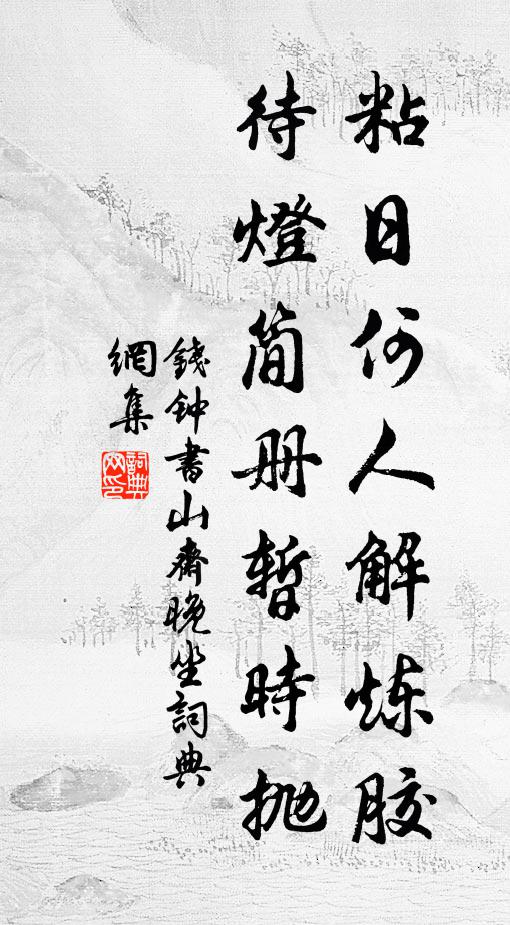 粘日何人解炼胶
待燈简册暫時抛
錢钟書山齋晚坐詞典
網集
詞典網印